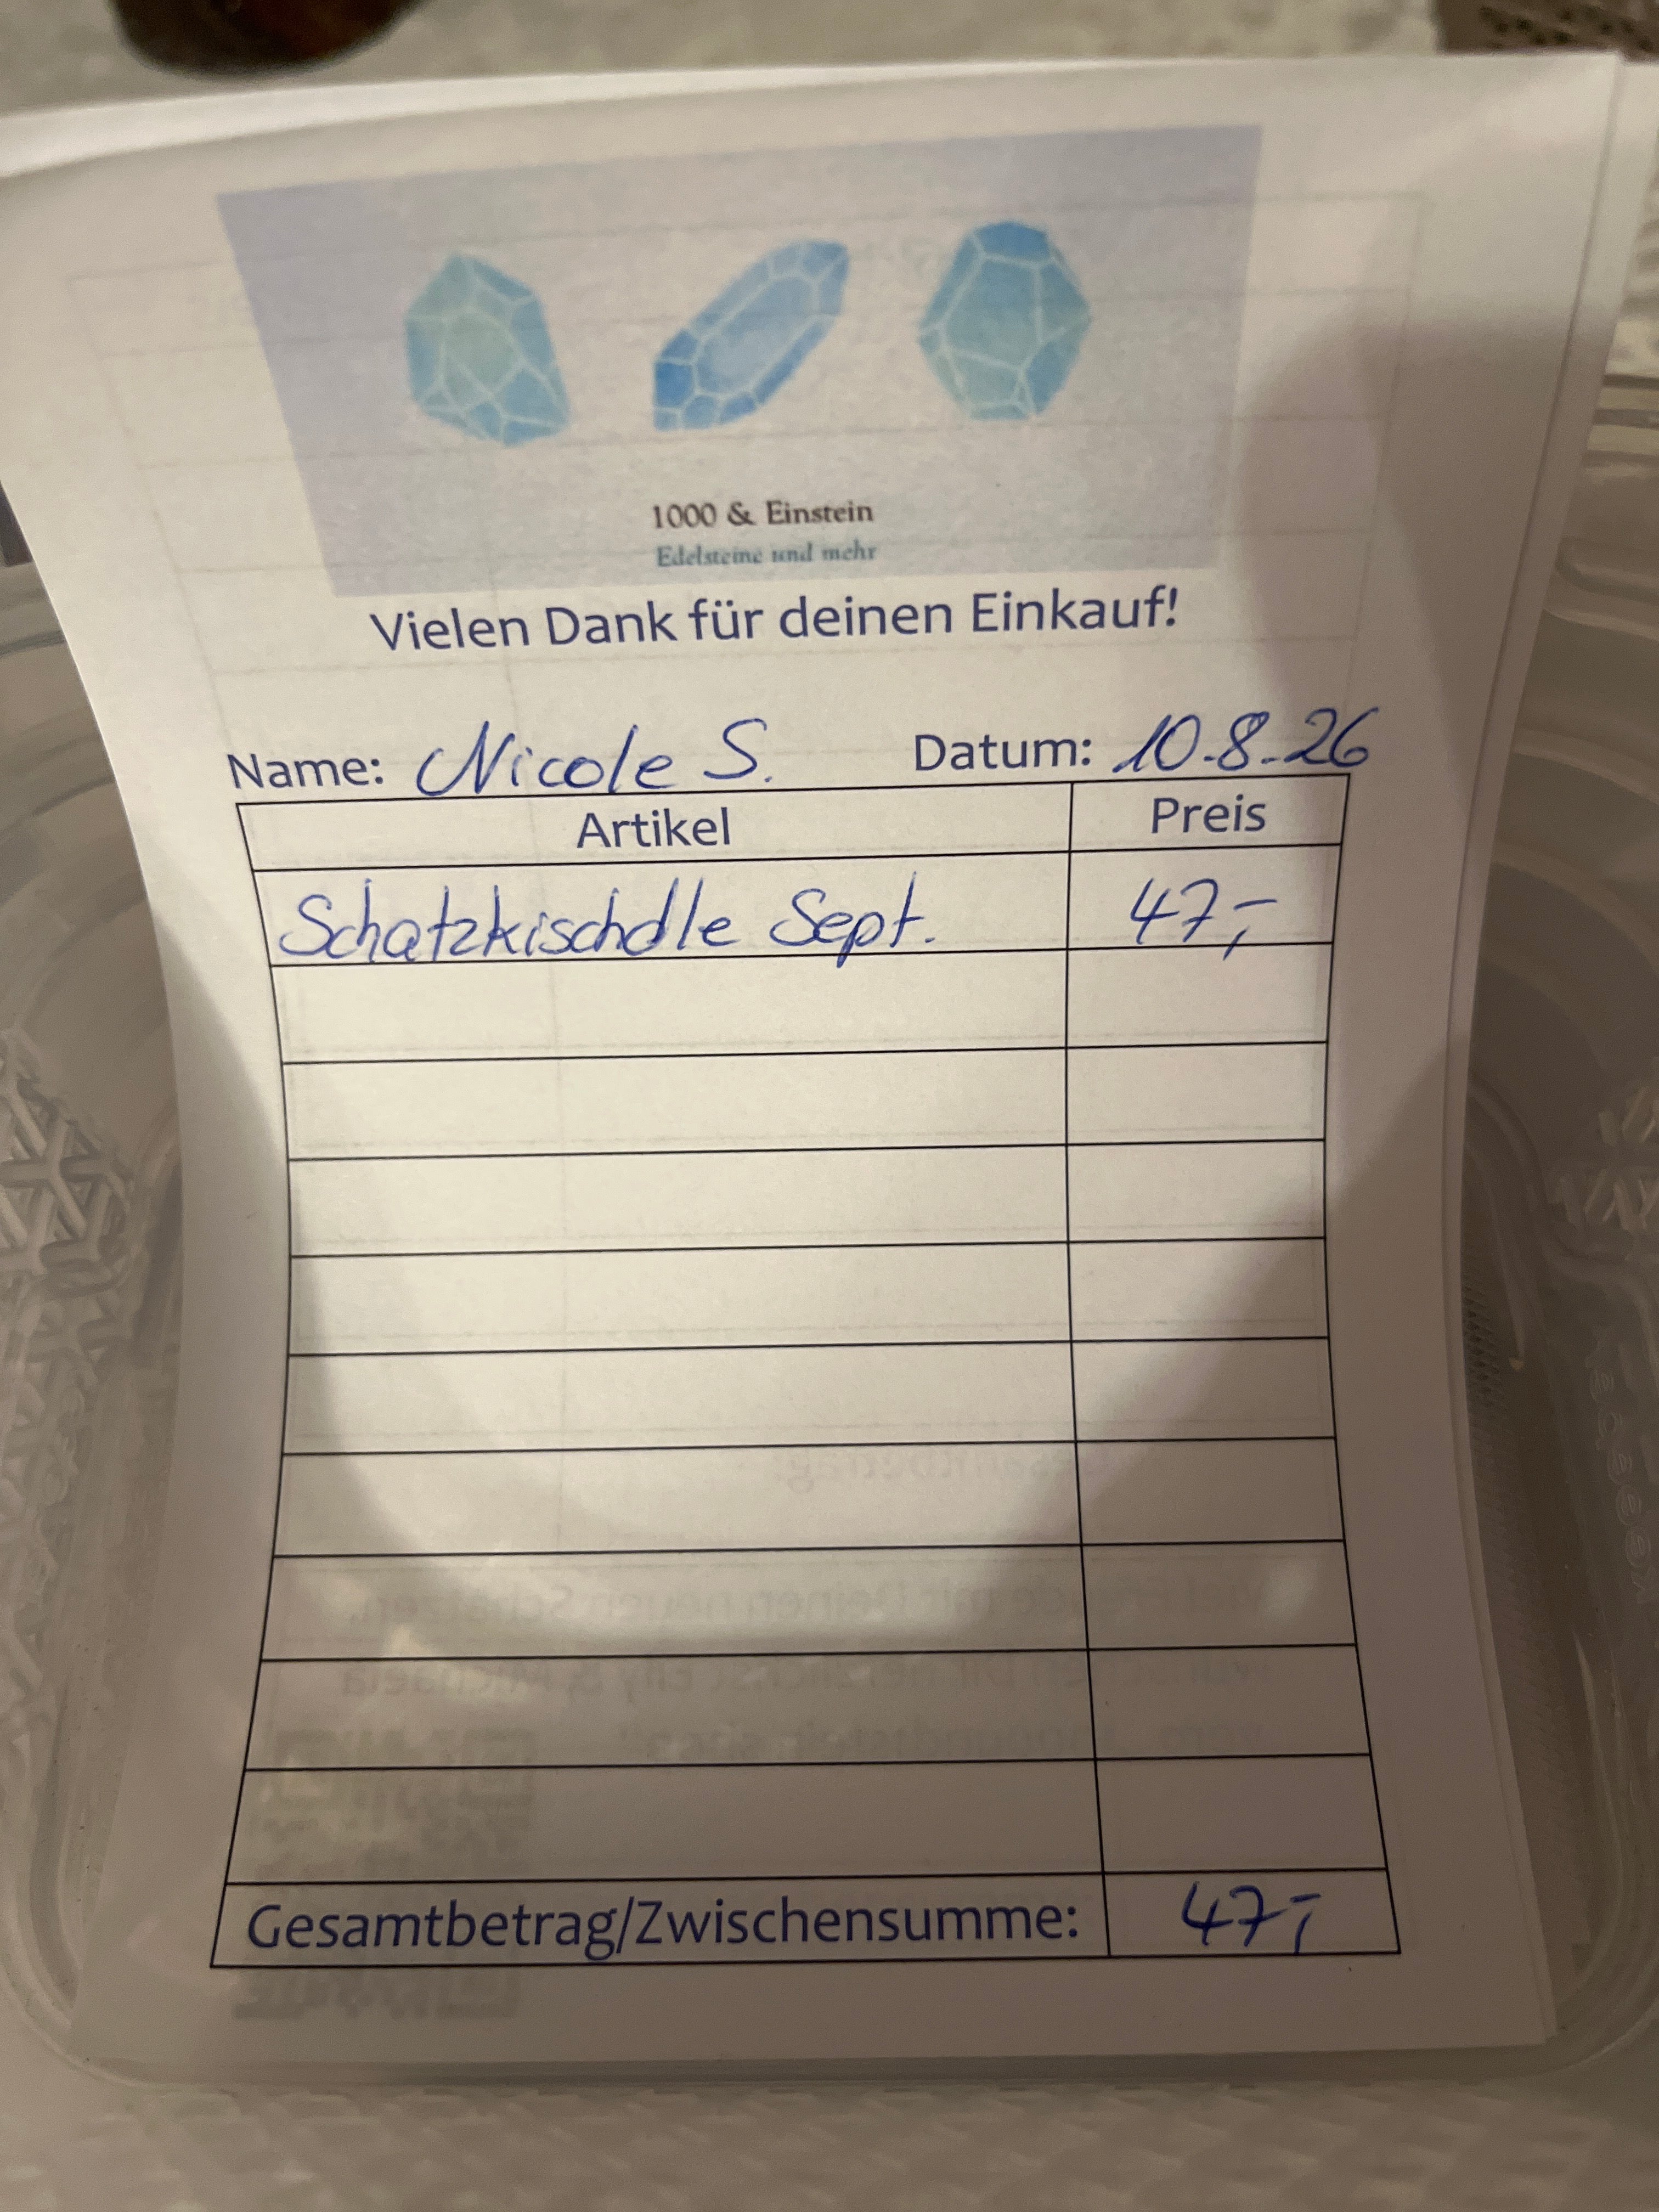 1000 & Einstein
Edelsteine und mehr
Vielen Dank für deinen Einkauf!
Name: Nicole S. Datum: 10.8.26
Artikel Preis
Schatzkischdle Sept. 47,-
Gesamtbetrag/Zwischensumme: 47,-